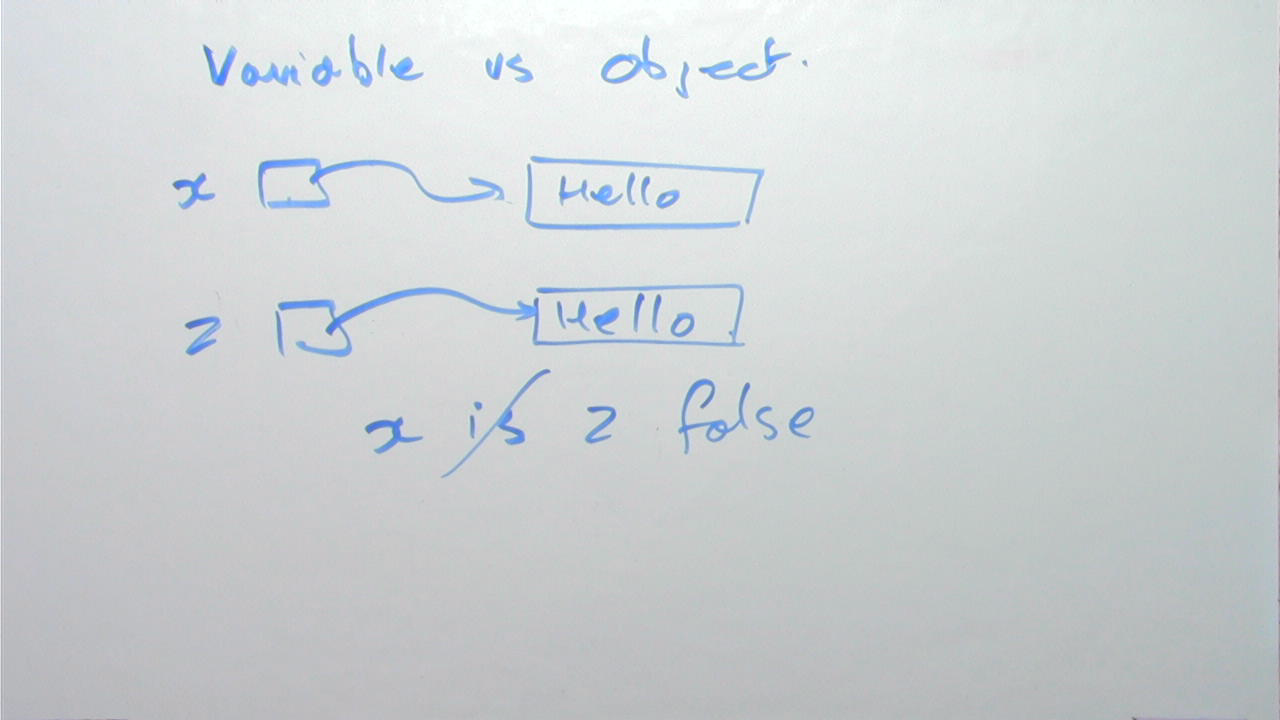 Variable vs object.
x Hello
z Hello
x is z false